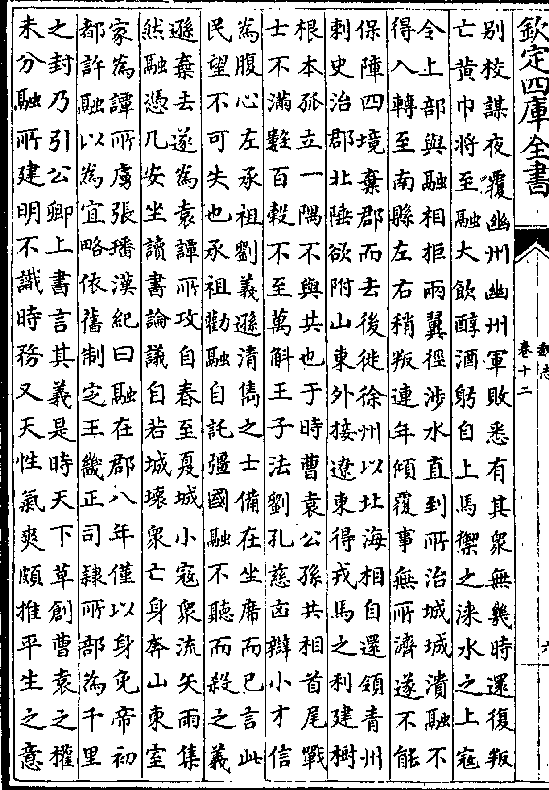 欽定四庫全書
魏志
卷十二
别校謀夜覆幽州幽州軍敗悉有其衆無幾時還復叛
亡黄巾将至融大飲醇酒躬自上馬禦之淶水之上寇
令上部與融相拒兩翼徑涉水直到所治城城潰融不
得入轉至南縣左右稍叛連年傾覆事無所濟遂不能
保障四境棄郡而去後徙徐州以北海相自還領青州
刺史治郡北陲欲附山東外接遼東得戎馬之利建樹
根本孤立一隅不與共也于時曹袁公孫共相首尾戰
士不滿數百穀不至萬斛王子法劉孔慈凶辯小才信
為腹心左承祖劉義遜清雋之士備在坐席而已言此
民望不可失也承祖勸融自託彊國融不聽而殺之義
遜棄去遂為袁譚所攻自春至夏城小寇衆流矢雨集
然融憑几安坐讀書論議自若城壞衆亡身奔山東室
家為譚所虜張璠漢紀曰融在郡八年僅以身免帝初
都許融以為宜略依舊制定王畿正司隸所部為千里
之封乃引公卿上書言其義是時天下草創曹袁之權
未分融所建明不識時務又天性氣爽頗推平生之意